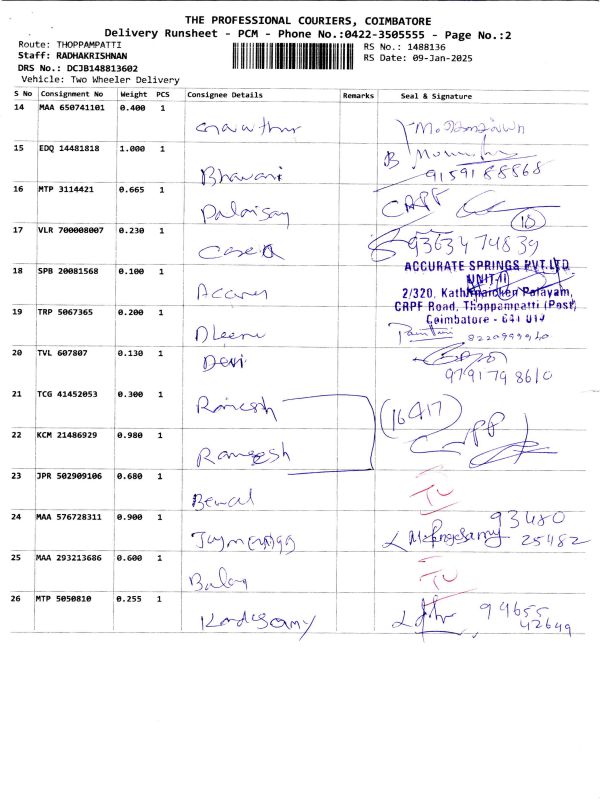 THE PROFESSIONAL COURIERS, COIMBATORE
Delivery Runsheet - PCM - Phone No.:0422-3505555 - Page No.:2
Route: THOPPAMPATTI
Staff: RADHAKRISHNAN
DRS No.: DCJB148813602
Vehicle: Two Wheeler Delivery
RS No.: 1488136
RS Date: 09-Jan-2025
S No Consignment No Weight PCS Consignee Details Remarks Seal & Signature
14 MAA 650741101 0.400 1
15 EDQ 14481818 1.000 1 Bhavani
9159188568
16 MTP 3114421 0.665 1 CRPF
18
17 VLR 700008007 0.230 1 9363474839
18 SPB 20081568 0.100 1
ACCURATE SPRINGS PVT.LTD
UNIT-II
2/320, Kathirnaicken Palayam,
CRPF Road, Thoppampatti (Post)
Coimbatore - 641 017
19 TRP 5067365 0.200 1 8220999940
20 TVL 607807 0.130 1 Devi
9791798610
21 TCG 41452053 0.300 1 Ramesh (16417)
22 KCM 21486929 0.980 1 Ramgesh
23 JPR 502909106 0.680 1 TU
24 MAA 576728311 0.900 1 93480
25482
25 MAA 293213686 0.600 1 Balaj TU
26 MTP 5050810 0.255 1 Kandasamy 94655
42649